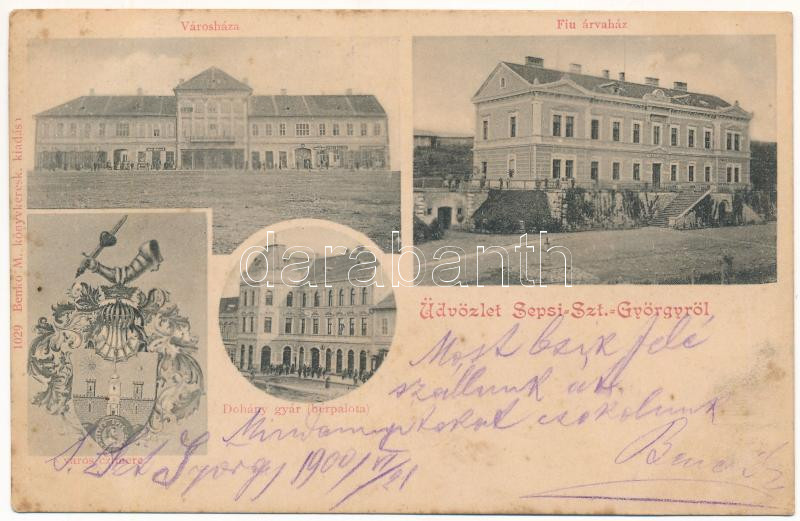 Városháza
Fiu árvaház
1029 Benkő M. könyvkeresk. kiadás
darabanth
Üdvözlet Sepsi-Szt.-Györgyről
Dohány gyár (berpalota)
Város czimere
Most csik felé
szállunk át
Mindannyitokat csokolunk
S. Szt György 1900 VI/21